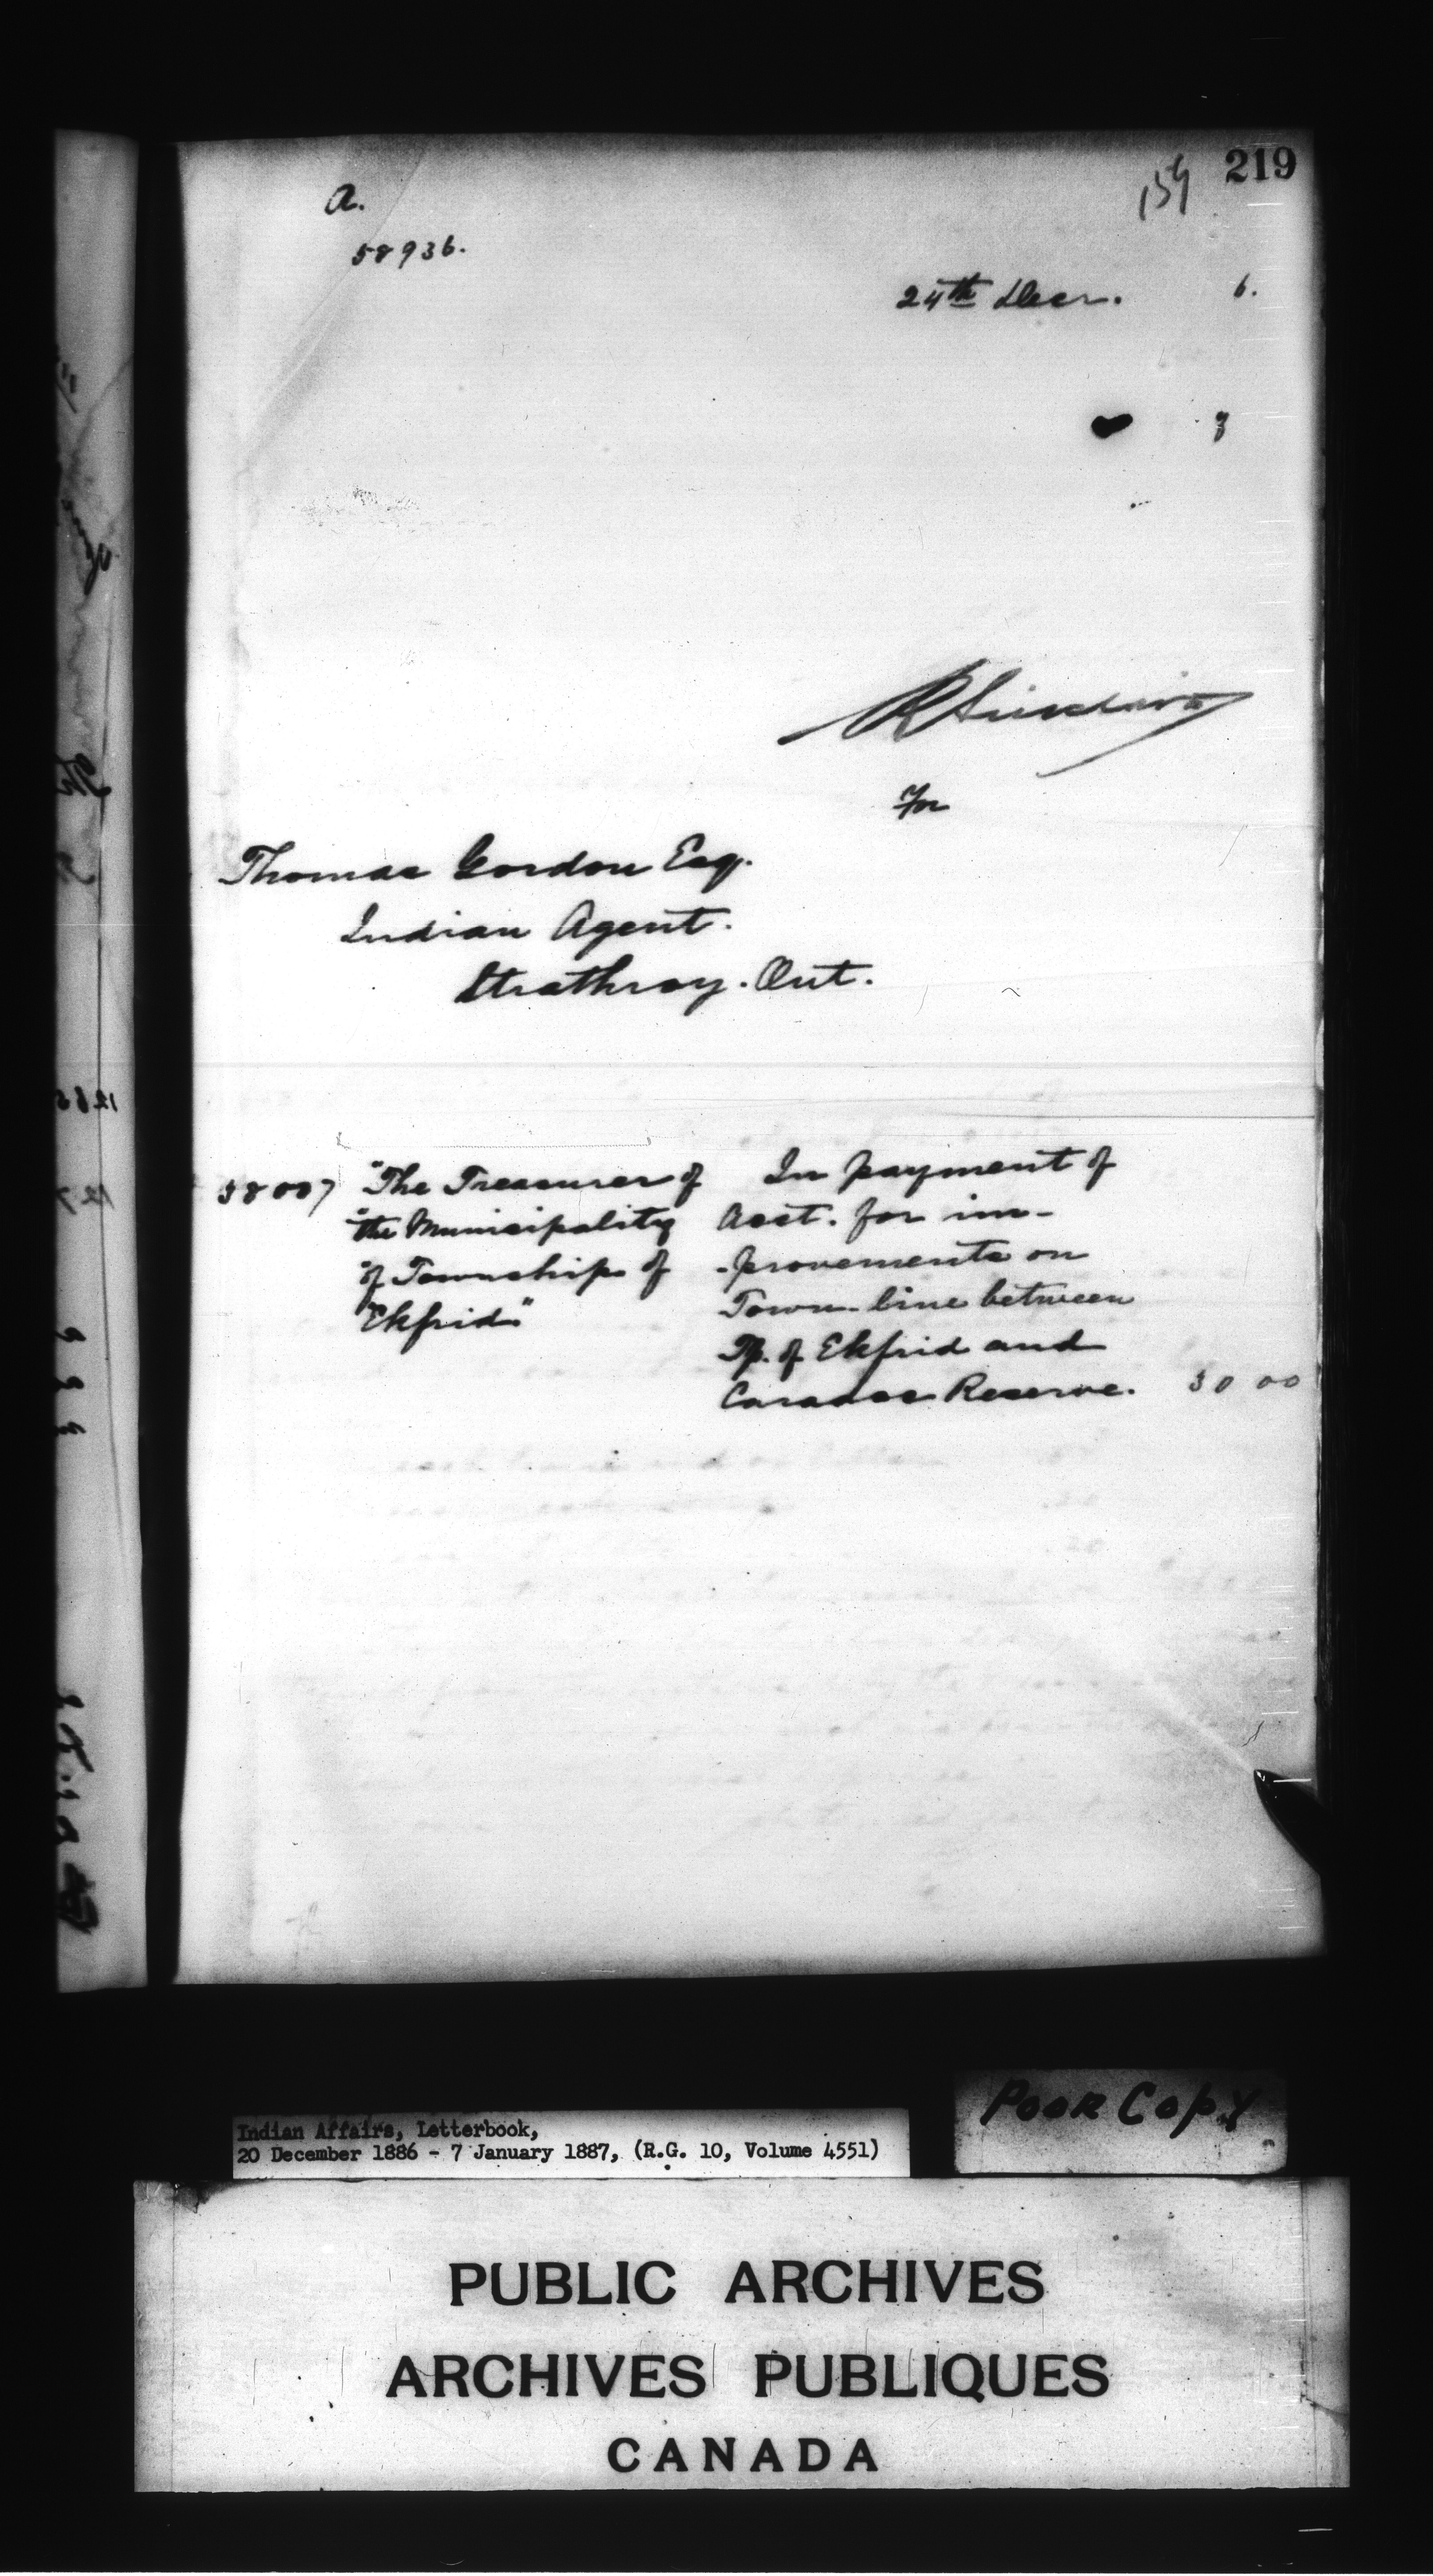 219
154
a.
58936.
24th Decr. 6.
R Sinclair
For
Thomas Gordon Esq.
Indian Agent.
Strathroy. Ont.
"The Treasurer of In payment of
"the Municipality Acct. for im-
"of Township of -provements on
"Ekfrid" Town-line between
Tp. of Ekfrid and
Caradoc Reserve. 30 00
Poor Copy
Indian Affairs, Letterbook,
20 December 1886 - 7 January 1887, (R.G. 10, Volume 4551)
PUBLIC ARCHIVES
ARCHIVES PUBLIQUES
CANADA